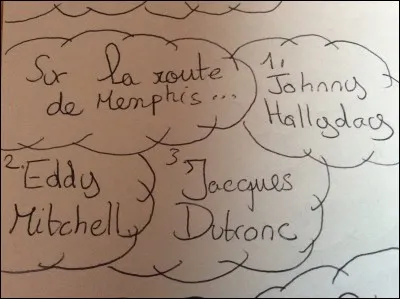 Sur la route
de Memphis...
1.
Johnny
Hallyday
2. Eddy
Mitchell
3. Jacques
Dutronc